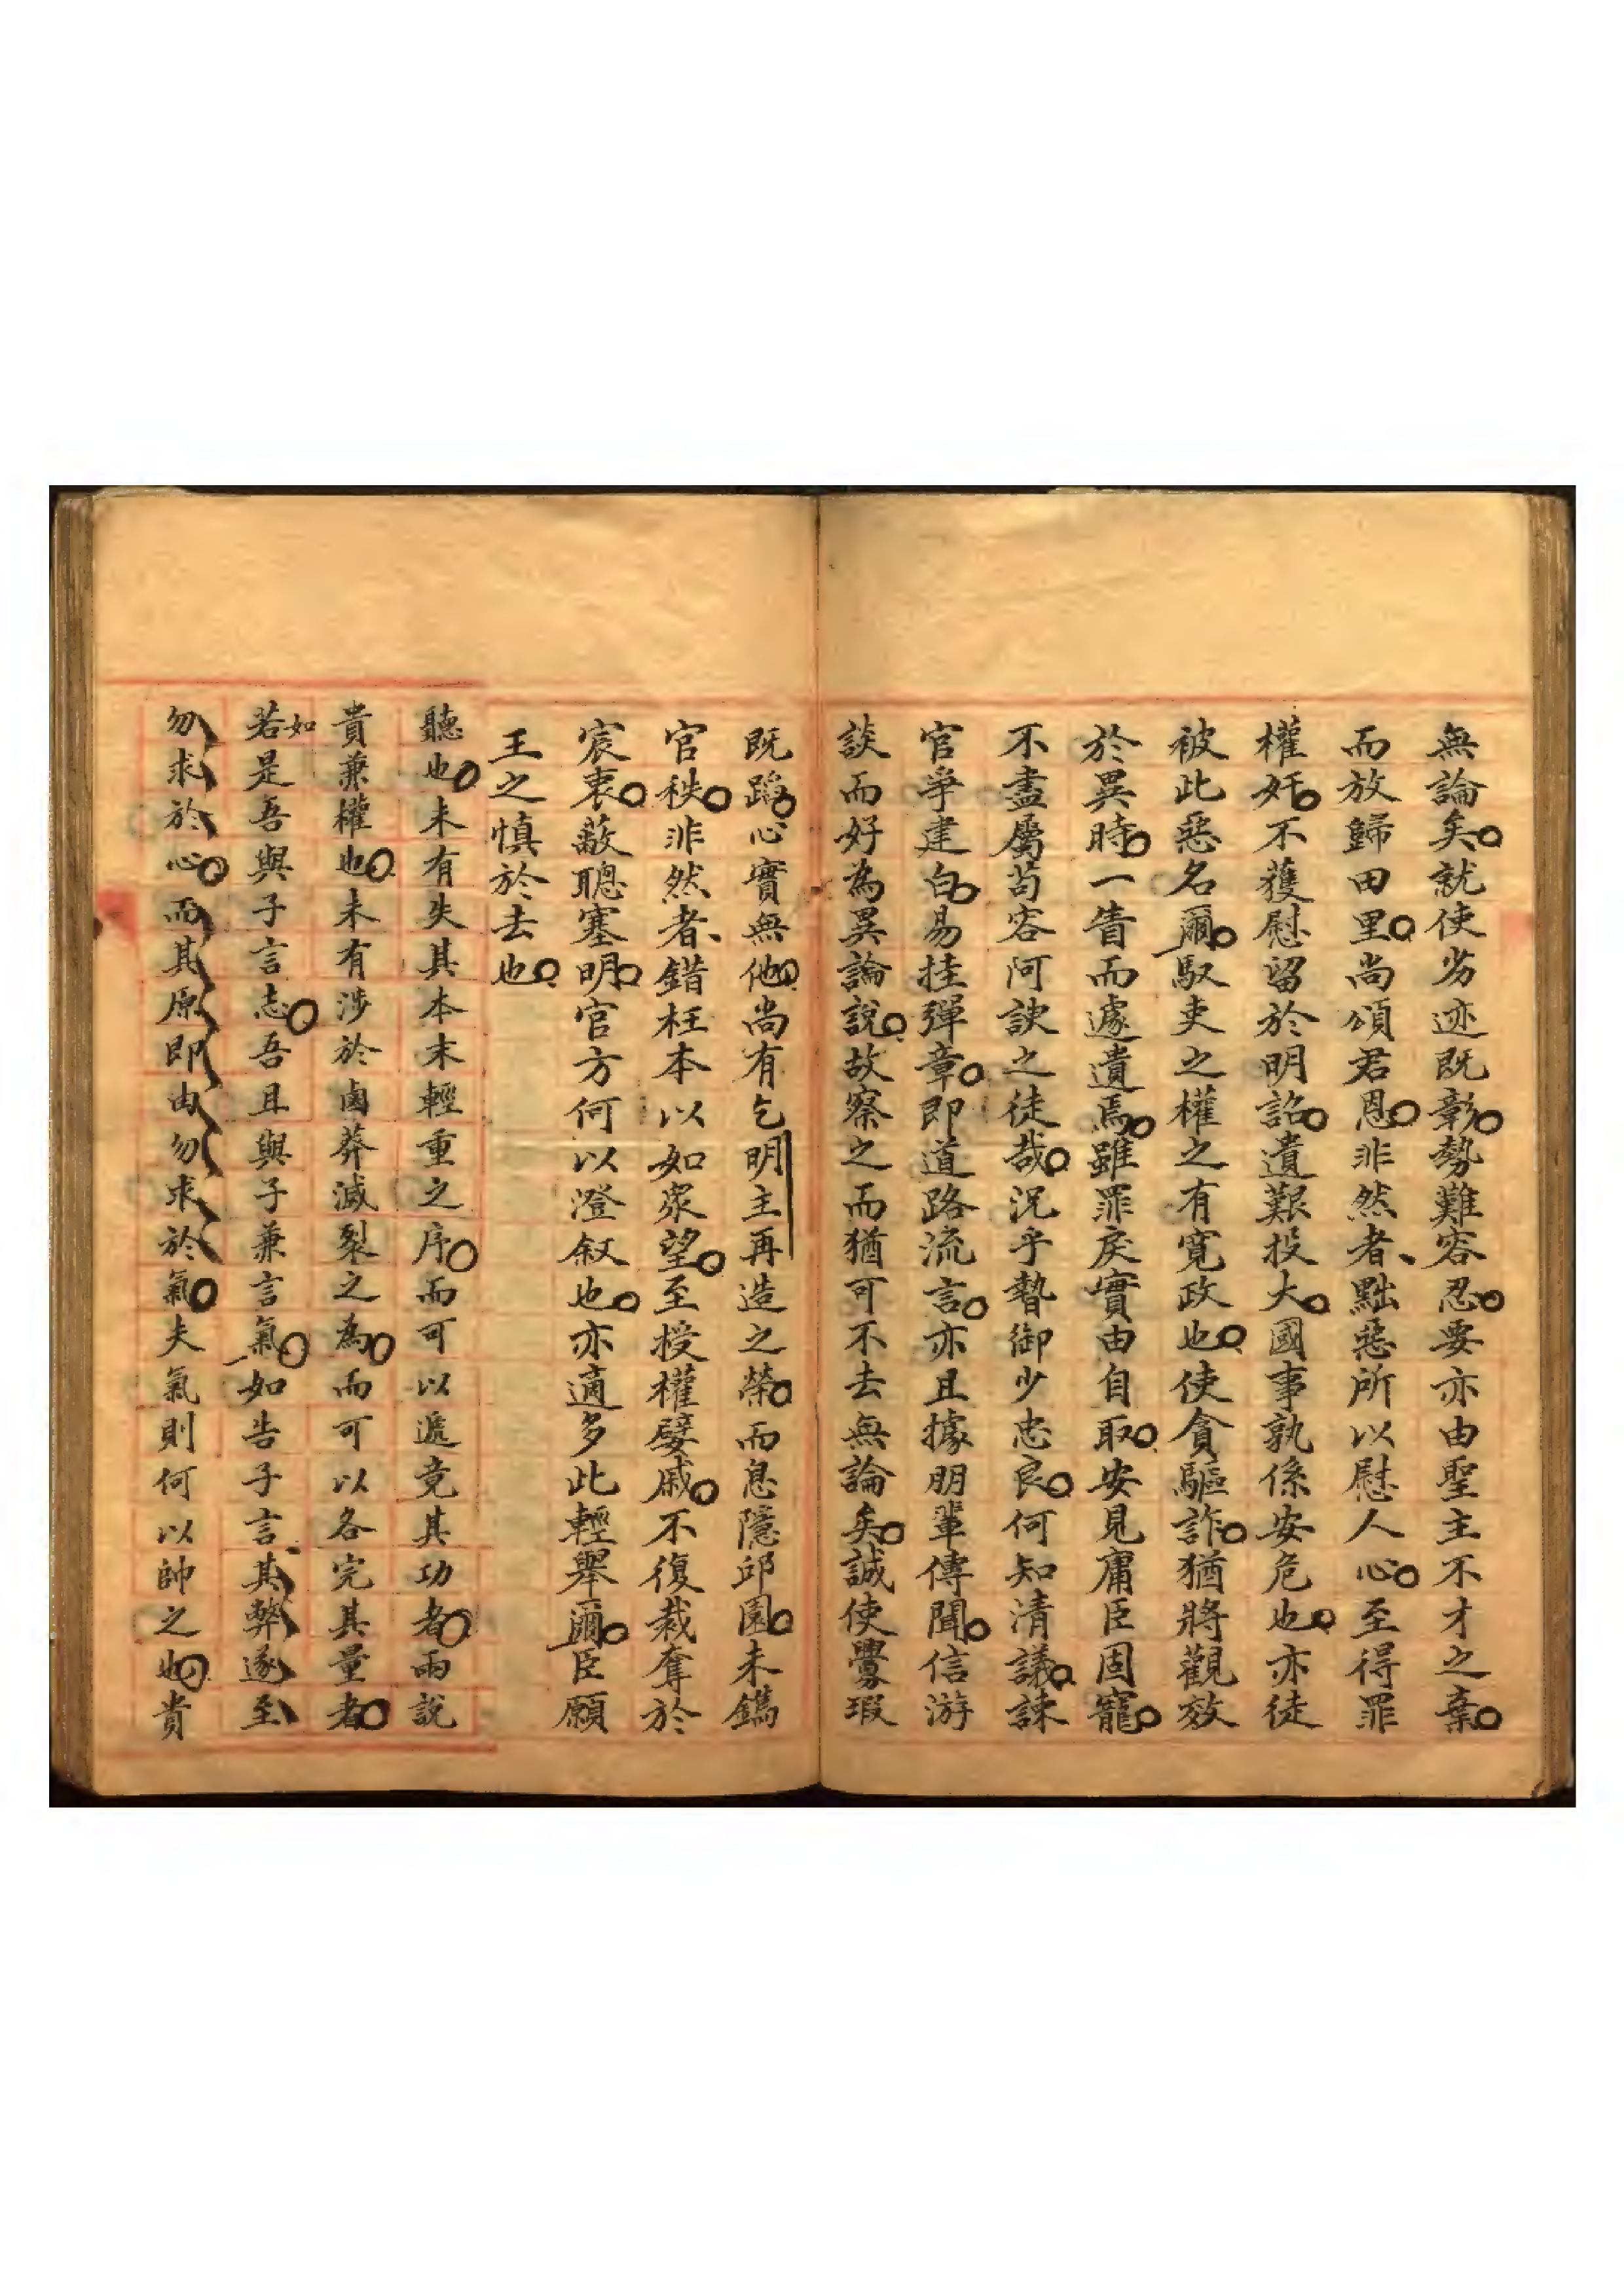 無論矣就使劣迹既彰勢難容忍要亦由聖主不才之棄
而放歸田里尚頌君恩非然者黜惡所以慰人心至得罪
權奸不獲慰留於明詔遺艱投大國事孰係安危也亦徒
被此惡名爾馭吏之權之有寬政也使貪驅詐猶將觀效
於異時一眚而遽遺焉雖罪戾實由自取安見庸臣固寵
不盡屬苟容阿諛之徒哉況乎暬御少忠良何知清議諫
官爭建白易挂彈章即道路流言亦且據朋輩傳聞信游
談而好為異論說故察之而猶可不去無論矣誠使釁瑕
既蹈心實無他尚有乞明主再造之榮而息隱邱園未鐫
官秩非然者錯枉本以如衆望至授權嬖戚不復裁奪於
宸衷蔽聰塞明官方何以澄叙也亦適多此輕舉爾臣願
王之慎於去也
聽也未有失其本末輕重之序而可以遞竟其功者兩說
貴兼權也未有涉於鹵莽滅裂之為而可以各完其量者
若如是吾與子言志吾且與子兼言氣如告子言其弊遂至
勿求於心而其原即由勿求於氣夫氣則何以帥之也貴